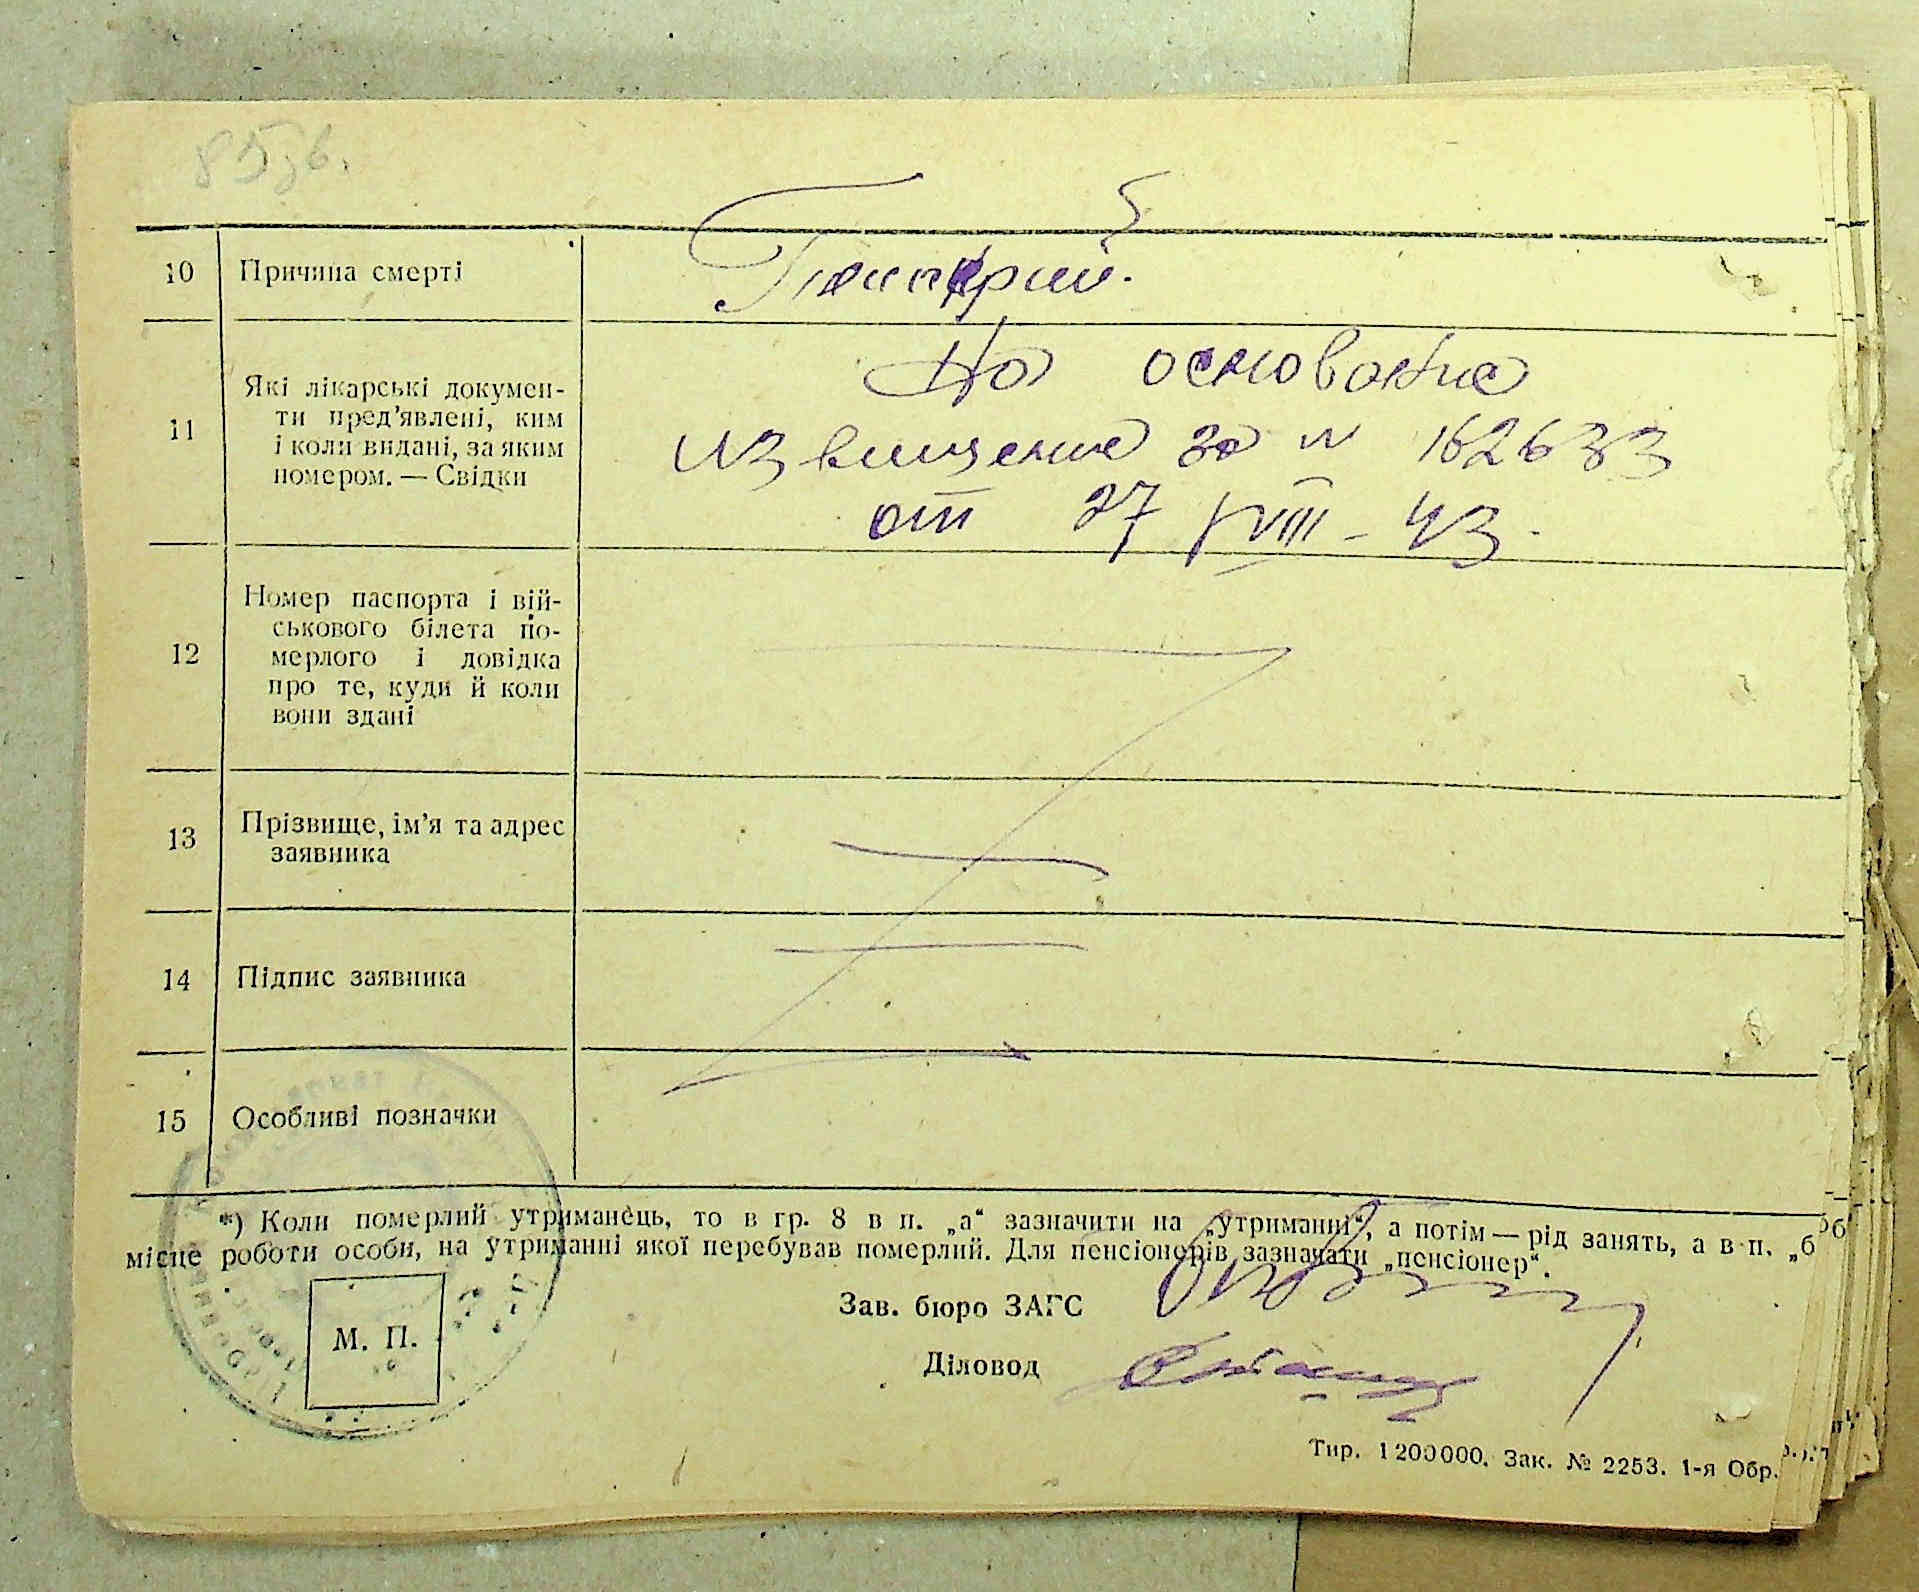 85зв.
10 Причина смерті
11 Які лікарські докумен-
ти пред'явлені, ким
і коли видані, за яким
номером. — Свідки
На основание
извищение за N 162633
от 27/VIII - 43.
12 Номер паспорта і вій-
ськового білета по-
мерлого і довідка
про те, куди й коли
вони здані
13 Прізвище, ім'я та адрес
заявника
14 Підпис заявника
15 Особливі позначки
*) Коли померлий утриманець, то в гр. 8 в п. „а“ зазначити на „утриманні“, а потім — рід занять, а в п. „б
місце роботи особи, на утриманні якої перебував померлий. Для пенсіонерів зазначати „пенсіонер“.
Зав. бюро ЗАГС
М. П.
Діловод
Тир. 1200000. Зак. № 2253. 1-я Обр.